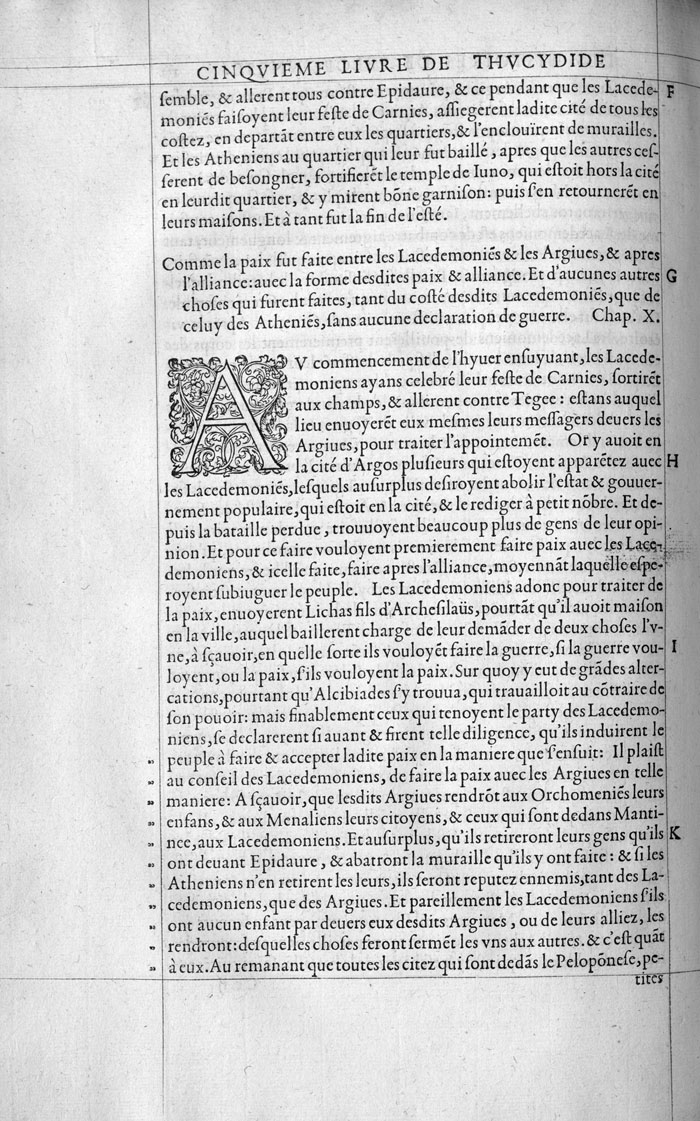 CINQVIEME LIVRE DE THVCYDIDE
ſemble, & allerent tous contre Epidaure, & ce pendant que les Lacede- F
moniés faiſoyent leur feſte de Carnies, aſſiegerent ladite cité de tous les
coſtez, en departāt entre eux les quartiers, & l'enclouïrent de murailles.
Et les Atheniens au quartier qui leur fut baillé, apres que les autres ceſ-
ſerent de beſongner, fortifierēt le temple de Iuno, qui eſtoit hors la cité
en leurdit quartier, & y mirent bōne garniſon: puis ſ'en retournerēt en
leurs maiſons. Et à tant fut la fin de l'eſté.
Comme la paix fut faite entre les Lacedemoniēs & les Argiues, & apres
l'alliance: auec la forme deſdites paix & alliance. Et d'aucunes autres G
choſes qui furent faites, tant du coſté deſdits Lacedemoniēs, que de
celuy des Atheniēs, ſans aucune declaration de guerre. Chap. X.
AV commencement de l'hyuer enſuyuant, les Lacede-
moniens ayans celebré leur feſte de Carnies, ſortirēt
aux champs, & allerent contre Tegee: eſtans auquel
lieu enuoyerēt eux meſmes leurs meſſagers deuers les
Argiues, pour traiter l'appointemēt. Or y auoit en
la cité d'Argos pluſieurs qui eſtoyent apparētez auec H
les Lacedemoniēs, leſquels auſurplus deſiroyent abolir l'eſtat & gouuer-
nement populaire, qui eſtoit en la cité, & le rediger à petit nōbre. Et de-
puis la bataille perdue, trouuoyent beaucoup plus de gens de leur opi-
nion. Et pour ce faire vouloyent premierement faire paix auec les Lace-
demoniens, & icelle faite, faire apres l'alliance, moyennāt laquelle eſpe-
royent ſubiuguer le peuple. Les Lacedemoniens adonc pour traiter de
la paix, enuoyerent Lichas fils d'Archeſilaüs, pourtāt qu'il auoit maiſon
en la ville, auquel baillerent charge de leur demāder de deux choſes l'v-
ne, à ſçauoir, en quelle ſorte ils vouloyēt faire la guerre, ſi la guerre vou- I
loyent, ou la paix, ſ'ils vouloyent la paix. Sur quoy y eut de grādes alter-
cations, pourtant qu'Alcibiades ſ'y trouua, qui trauailloit au cōtraire de
ſon pouoir: mais finablement ceux qui tenoyent le party des Lacedemo-
niens, ſe declarerent ſi auant & firent telle diligence, qu'ils induirent le
peuple à faire & accepter ladite paix en la maniere que ſ'enſuit: Il plaiſt
au conſeil des Lacedemoniens, de faire la paix auec les Argiues en telle
maniere: A ſçauoir, que leſdits Argiues rendrōt aux Orchomeniés leurs
enfans, & aux Menaliens leurs citoyens, & ceux qui ſont dedans Manti-
nee, aux Lacedemoniens. Et auſurplus, qu'ils retireront leurs gens qu'ils K
ont deuant Epidaure, & abatront la muraille qu'ils y ont faite: & ſi les
Atheniens n'en retirent les leurs, ils ſeront reputez ennemis, tant des La-
cedemoniens, que des Argiues. Et pareillement les Lacedemoniens ſ'ils
ont aucun enfant par deuers eux deſdits Argiues, ou de leurs alliez, les
rendront: deſquelles choſes feront ſermēt les vns aux autres. & c'eſt quāt
à eux. Au remanant que toutes les citez qui ſont dedās le Pelopōneſe, pe-
tites